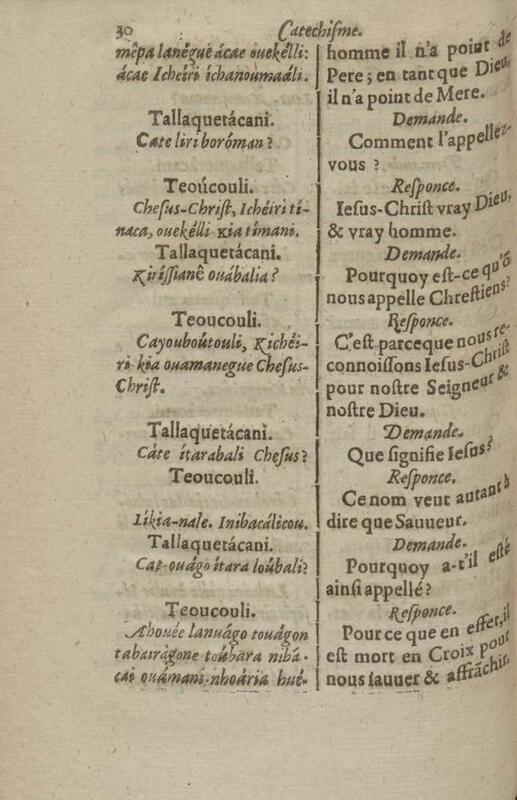 30 Catechiſme.
mêpa lanégue ácae ouekélli:
ácae Icheíri íchanoumaáli.
Tallaquetácani.
Cate liri boróman?
Teoúcouli.
Cheſus-Chriſt, Ichéiri tí-
naca, ouekélli κia tímani.
Tallaquetácani.
Κiriſſianê ouábalia?
Teoucouli.
Cayouboútouli, Κichéi-
ri κia ouamanegue Cheſus-
Chriſt.
Tallaquetácani.
Cáte ítarabali Cheſus?
Teoucouli.
Líκia-nale. Inibacálicou.
Tallaquetácani.
Cat-ouágo ítara loúbali?
Teoucouli.
Ahouée lanuágo touágon
tabarrágone toúbara nibá-
cai ouámani-nhoária hué-
homme il n'a point de
Pere; en tant que Dieu,
il n'a point de Mere.
Demande.
Comment l'appellez-
vous ?
Reſponce.
Ieſus-Chriſt vray Dieu,
& vray homme.
Demande.
Pourquoy eſt-ce qu'õ
nous appelle Chreſtiens?
Reſponce.
C'eſt parceque nous re-
connoiſſons Ieſus-Chriſt
pour noſtre Seigneur &
noſtre Dieu.
Demande.
Que ſignifie Ieſus?
Reſponce.
Ce nom veut autant à
dire que Sauueur.
Demande.
Pourquoy a-t'il eſté
ainſi appellé?
Reſponce.
Pour ce que en effet, il
eſt mort en Croix pour
nous ſauuer & affrãchir,